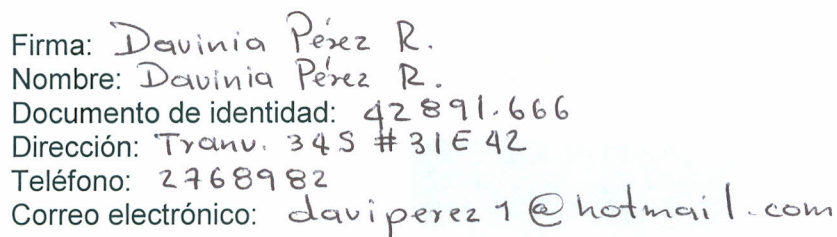 Firma: Davinia Pérez R.
Nombre: Davinia Pérez R.
Documento de identidad: 42891.666
Dirección: Tranv. 34S #31E 42
Teléfono: 2768982
Correo electrónico: daviperez1@hotmail.com